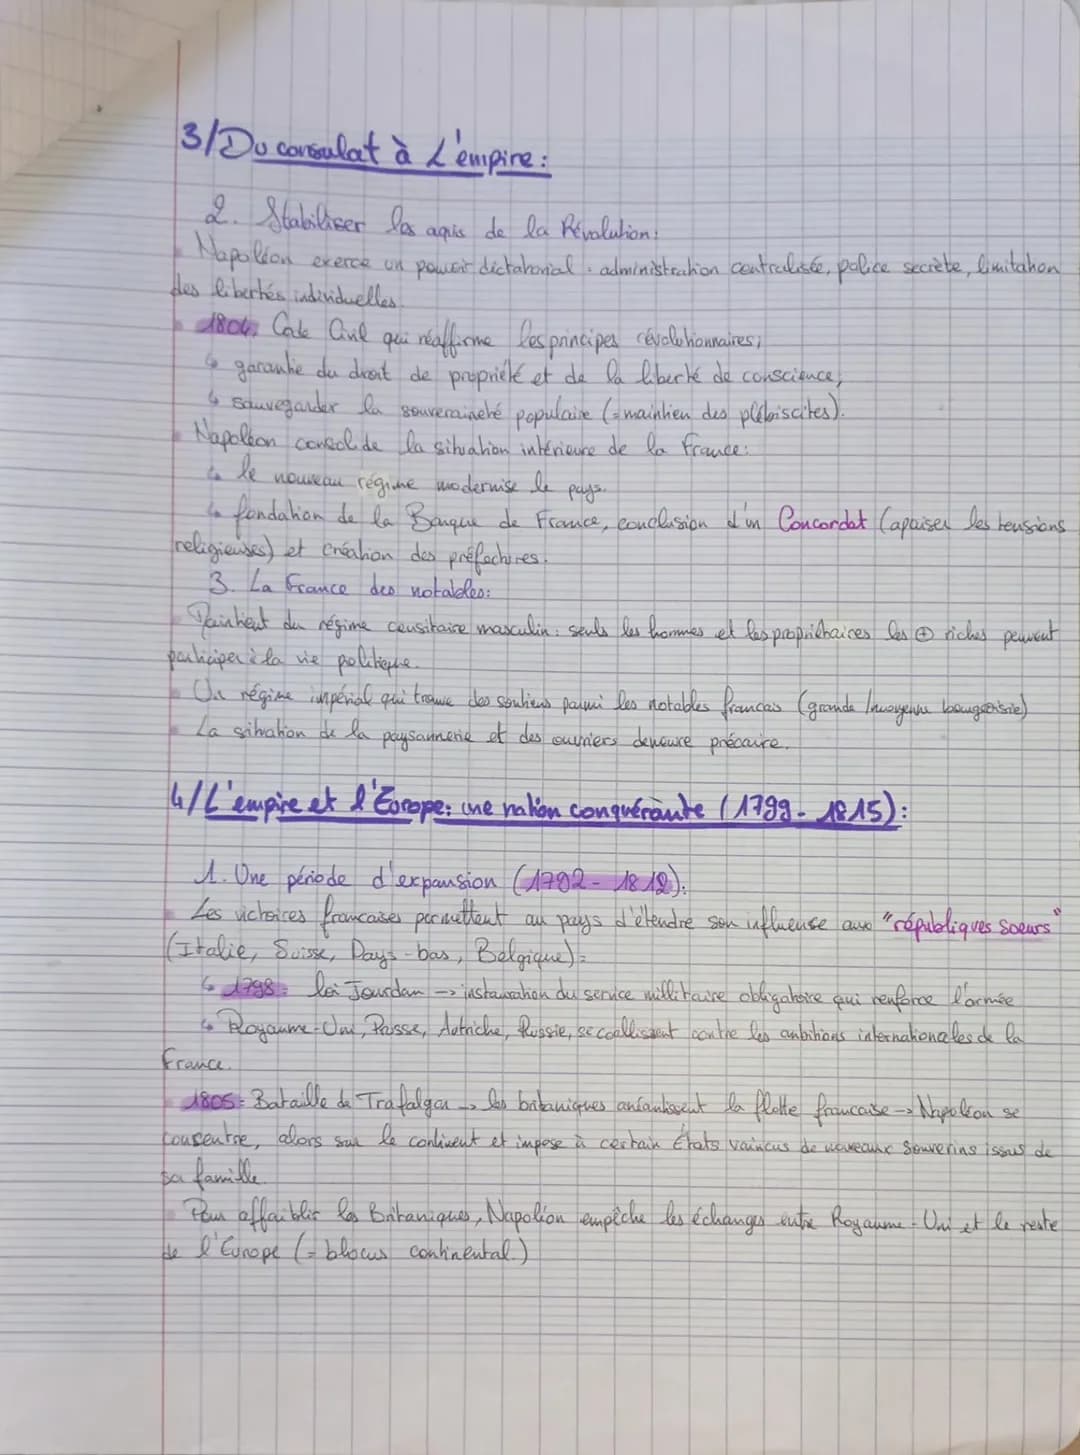 3/Du consulat à L'empire:
2. Stabiliser les aquis de la Révolution:
Napoléon exerce un pouvoir dictatorial : administration centralisée, police secrète, limitation
des libertés individuelles.
1804: Code Civil qui réaffirme les principes révolutionnaires;
↳ garantie du droit de propriété et de la liberté de conscience,
↳ sauvegarder la souveraineté populaire (=maintien des plébiscites).
Napoléon consolide la situation intérieure de la France:
↳ le nouveau régime modernise le pays.
↳ fondation de la Banque de France, conclusion d'un Concordat (apaiser les tensions
religieuses) et création des préfectures.
3. La France des notables:
Maintient du régime censitaire masculin : seuls les hommes et les propriétaires les ⊕ riches peuvent
participer à la vie politique.
Un régime impérial qui trouve des soutiens parmi les notables francais (grande/moyenne bourgeoisie)
La situation de la paysannerie et des ouvriers demeure précaire.
4/L'empire et l'Europe: une nation conquérante (1799-1815):
1. Une période d'expansion (1792-1812):
Les victoires francaises permettent au pays d'étendre son influence aux "républiques soeurs"
(Italie, Suisse, Pays-bas, Belgique):
↳ 1798: loi Jourdan → instauration du service millitaire obligatoire qui renforce l'armée
↳ Royaume-Uni, Prusse, Autriche, Russie, se coallissent contre les ambitions internationales de la
France.
1805: Bataille de Trafalgar → les britaniques anéantissent la flotte francaise → Napoléon se
consentre, alors sur le continent et impose à certain États vaincus de nouveaux souverins issus de
sa famille.
Pour affaiblir les Britaniques, Napoléon empêche les échanges entre Royaume-Uni et le reste
de l'Europe (= blocus continental.)